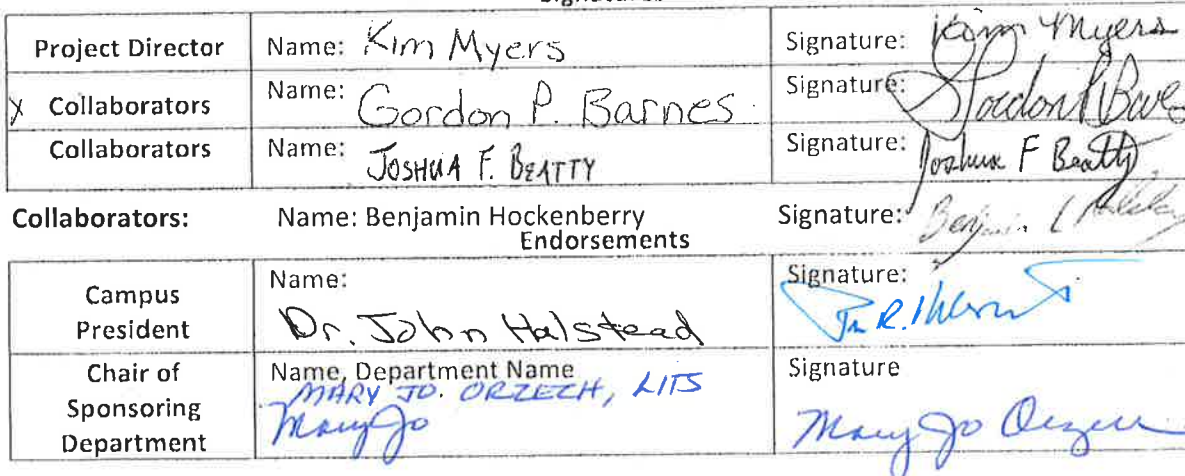 Project Director Name: Kim Myers Signature: Kim Myers
X Collaborators Name: Gordon P. Barnes Signature: Gordon P
Collaborators Name: JOSHUA F. BEATTY Signature: Joshua F Beatty
Collaborators: Name: Benjamin Hockenberry Signature:
Endorsements
Campus President Name: Dr. John Halstead Signature:
Chair of Sponsoring Department Name, Department Name MARY JO. ORZECH, LITS Signature
Mary Jo Mary Jo